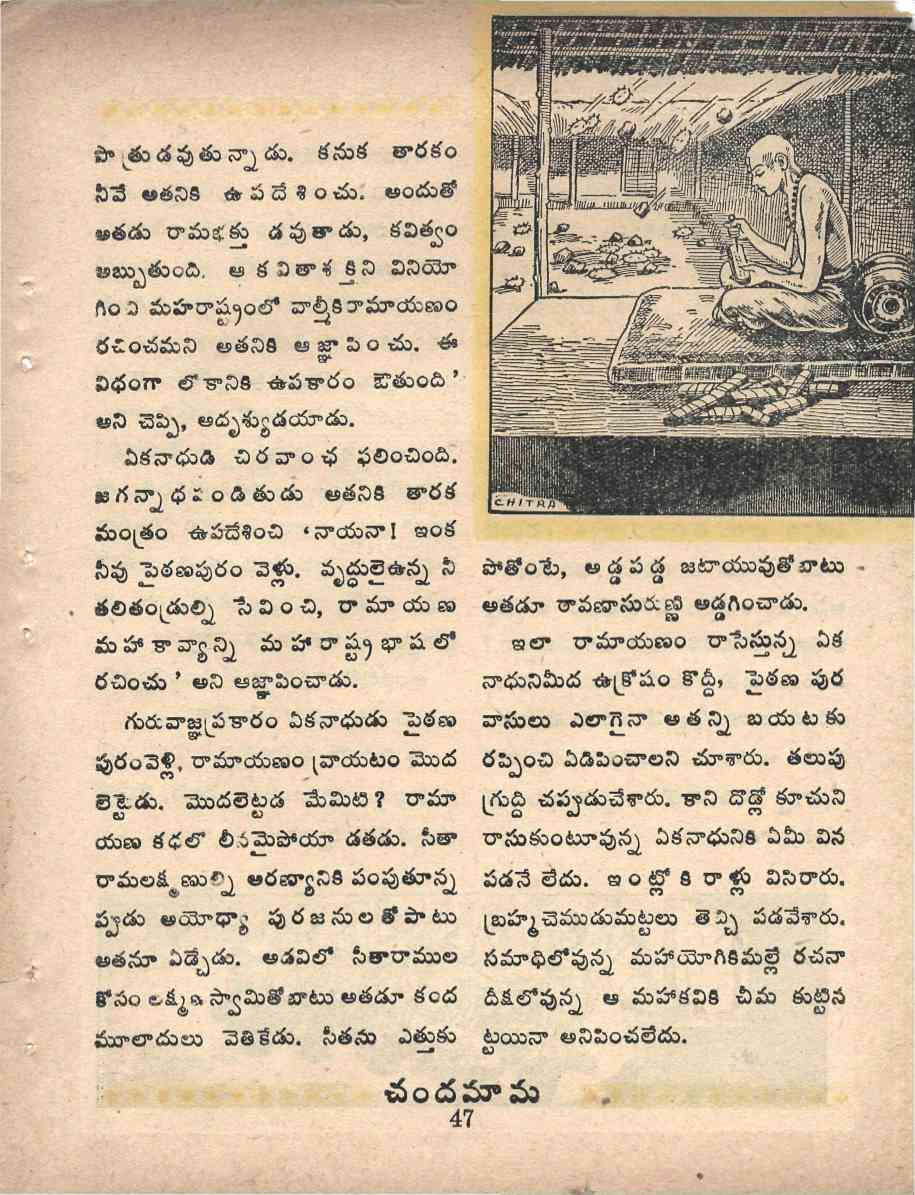 పాత్రుడవుతున్నాడు. కనుక తారకం
నీవే అతనికి ఉపదేశించు. అందుతో
అతడు రామభక్తు డవుతాడు, కవిత్వం
అబ్బుతుంది. ఆ కవితాశక్తిని వినియో
గించి మహరాష్ట్రంలో వాల్మీకిరామాయణం
రచించమని అతనికి ఆజ్ఞాపించు. ఈ
విధంగా లోకానికి ఉపకారం ఔతుంది'
అని చెప్పి, అదృశ్యుడయాడు.
ఏకనాధుడి చిరవాంఛ ఫలించింది.
జగన్నాధపండితుడు అతనికి తారక
మంత్రం ఉపదేశించి 'నాయనా! ఇంక
నీవు పైఠణపురం వెళ్లు. వృద్ధులైఉన్న నీ
తలితండ్రుల్ని సేవించి, రామాయణ
మహాకావ్యాన్ని మహారాష్ట్రభాషలో
రచించు' అని ఆజ్ఞాపించాడు.
గురువాజ్ఞప్రకారం ఏకనాధుడు పైఠణ
పురంవెళ్లి, రామాయణం వ్రాయటం మొద
లెట్టేడు. మొదలెట్టడ మేమిటి? రామా
యణ కధలో లీనమైపోయా డతడు. సీతా
రామలక్ష్మణుల్ని అరణ్యానికి పంపుతూన్న
ప్పుడు అయోధ్యా పురజనులతోపాటు
అతనూ ఏడ్చేడు. అడవిలో సీతారాముల
కోసం లక్ష్మణస్వామితోబాటు అతడూ కంద
మూలాదులు వెతికేడు. సీతను ఎత్తుకు
CHITRA
పోతోంటే, అడ్డపడ్డ జటాయువుతోబాటు
అతడూ రావణాసురుణ్ణి అడ్డగించాడు.
ఇలా రామాయణం రాసేస్తున్న ఏక
నాధునిమీద ఉక్రోషం కొద్దీ, పైఠణ పుర
వాసులు ఎలాగైనా అతన్ని బయటకు
రప్పించి ఏడిపించాలని చూశారు. తలుపు
గ్రుద్ది చప్పుడుచేశారు. కాని దొడ్లో కూచుని
రాసుకుంటూవున్న ఏకనాధునికి ఏమీ విన
పడనే లేదు. ఇంట్లోకి రాళ్లు విసిరారు.
బ్రహ్మచెముడుమట్టలు తెచ్చి పడవేశారు.
సమాధిలోవున్న మహాయోగికిమల్లే రచనా
దీక్షలోవున్న ఆ మహాకవికి చీమ కుట్టిన
ట్టయినా అనిపించలేదు.
చందమామ
47